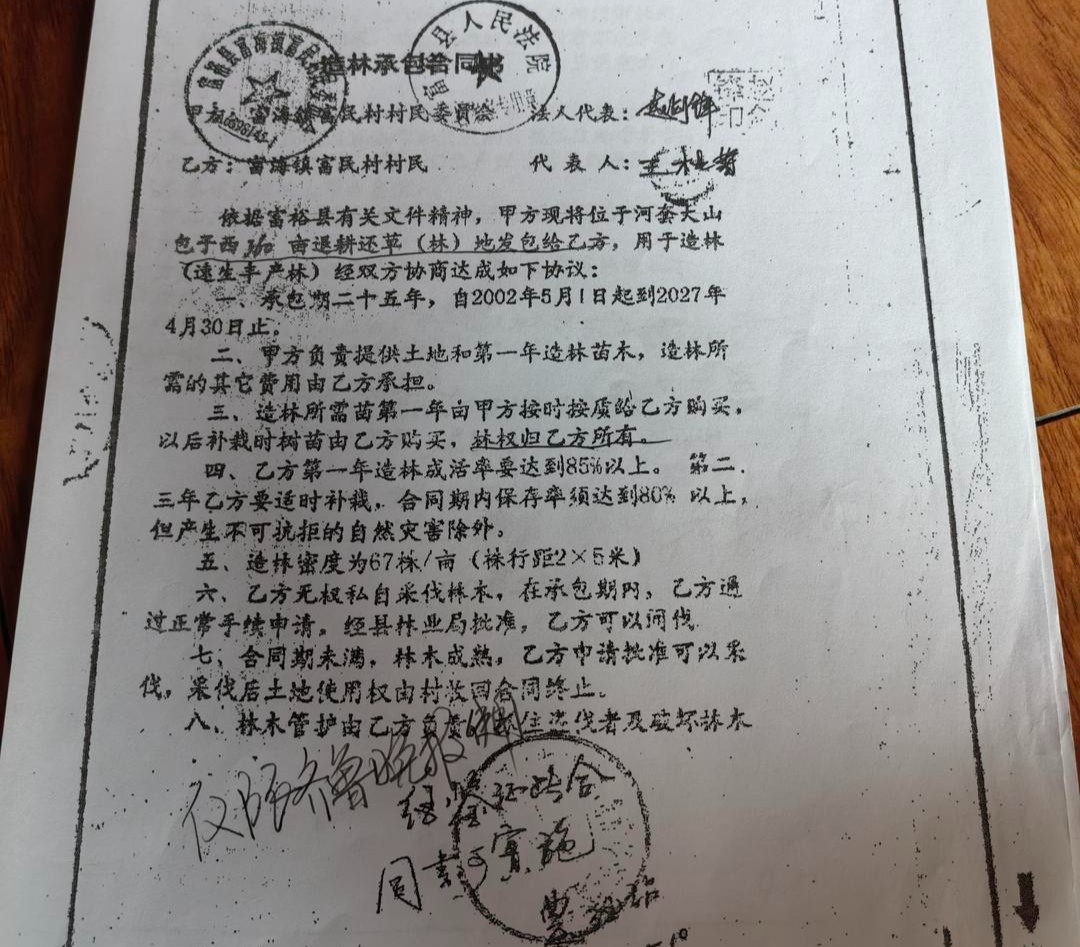 造林承包合同书
甲方：富海镇富民村村民委员会 法人代表：
乙方：富海镇富民村村民 代表人：
依据富裕县有关文件精神，甲方现将位于河套大山
包子西360亩退耕还草（林）地发包给乙方，用于造林
（速生丰产林）经双方协商达成如下协议：
一、承包期二十五年，自2002年5月1日起到2027年
4月30日止。
二、甲方负责提供土地和第一年造林苗木，造林所
需的其它费用由乙方承担。
三、造林所需苗第一年由甲方按时按质给乙方购买，
以后补栽时树苗由乙方购买，林权归乙方所有。
四、乙方第一年造林成活率要达到85%以上。第二、
三年乙方要适时补栽，合同期内保存率须达到80%以上，
但产生不可抗拒的自然灾害除外。
五、造林密度为67株/亩（株行距2×5米）
六、乙方无权私自采伐林木，在承包期内，乙方通
过正常手续申请，经县林业局批准，乙方可以间伐
七、合同期未满，林木成熟，乙方申请批准可以采
伐，采伐后土地使用权由村收回合同终止。
八、林木管护由乙方负责 盗伐者及破坏林木
仅供齐鲁晚报
经鉴证此合
同 可实施